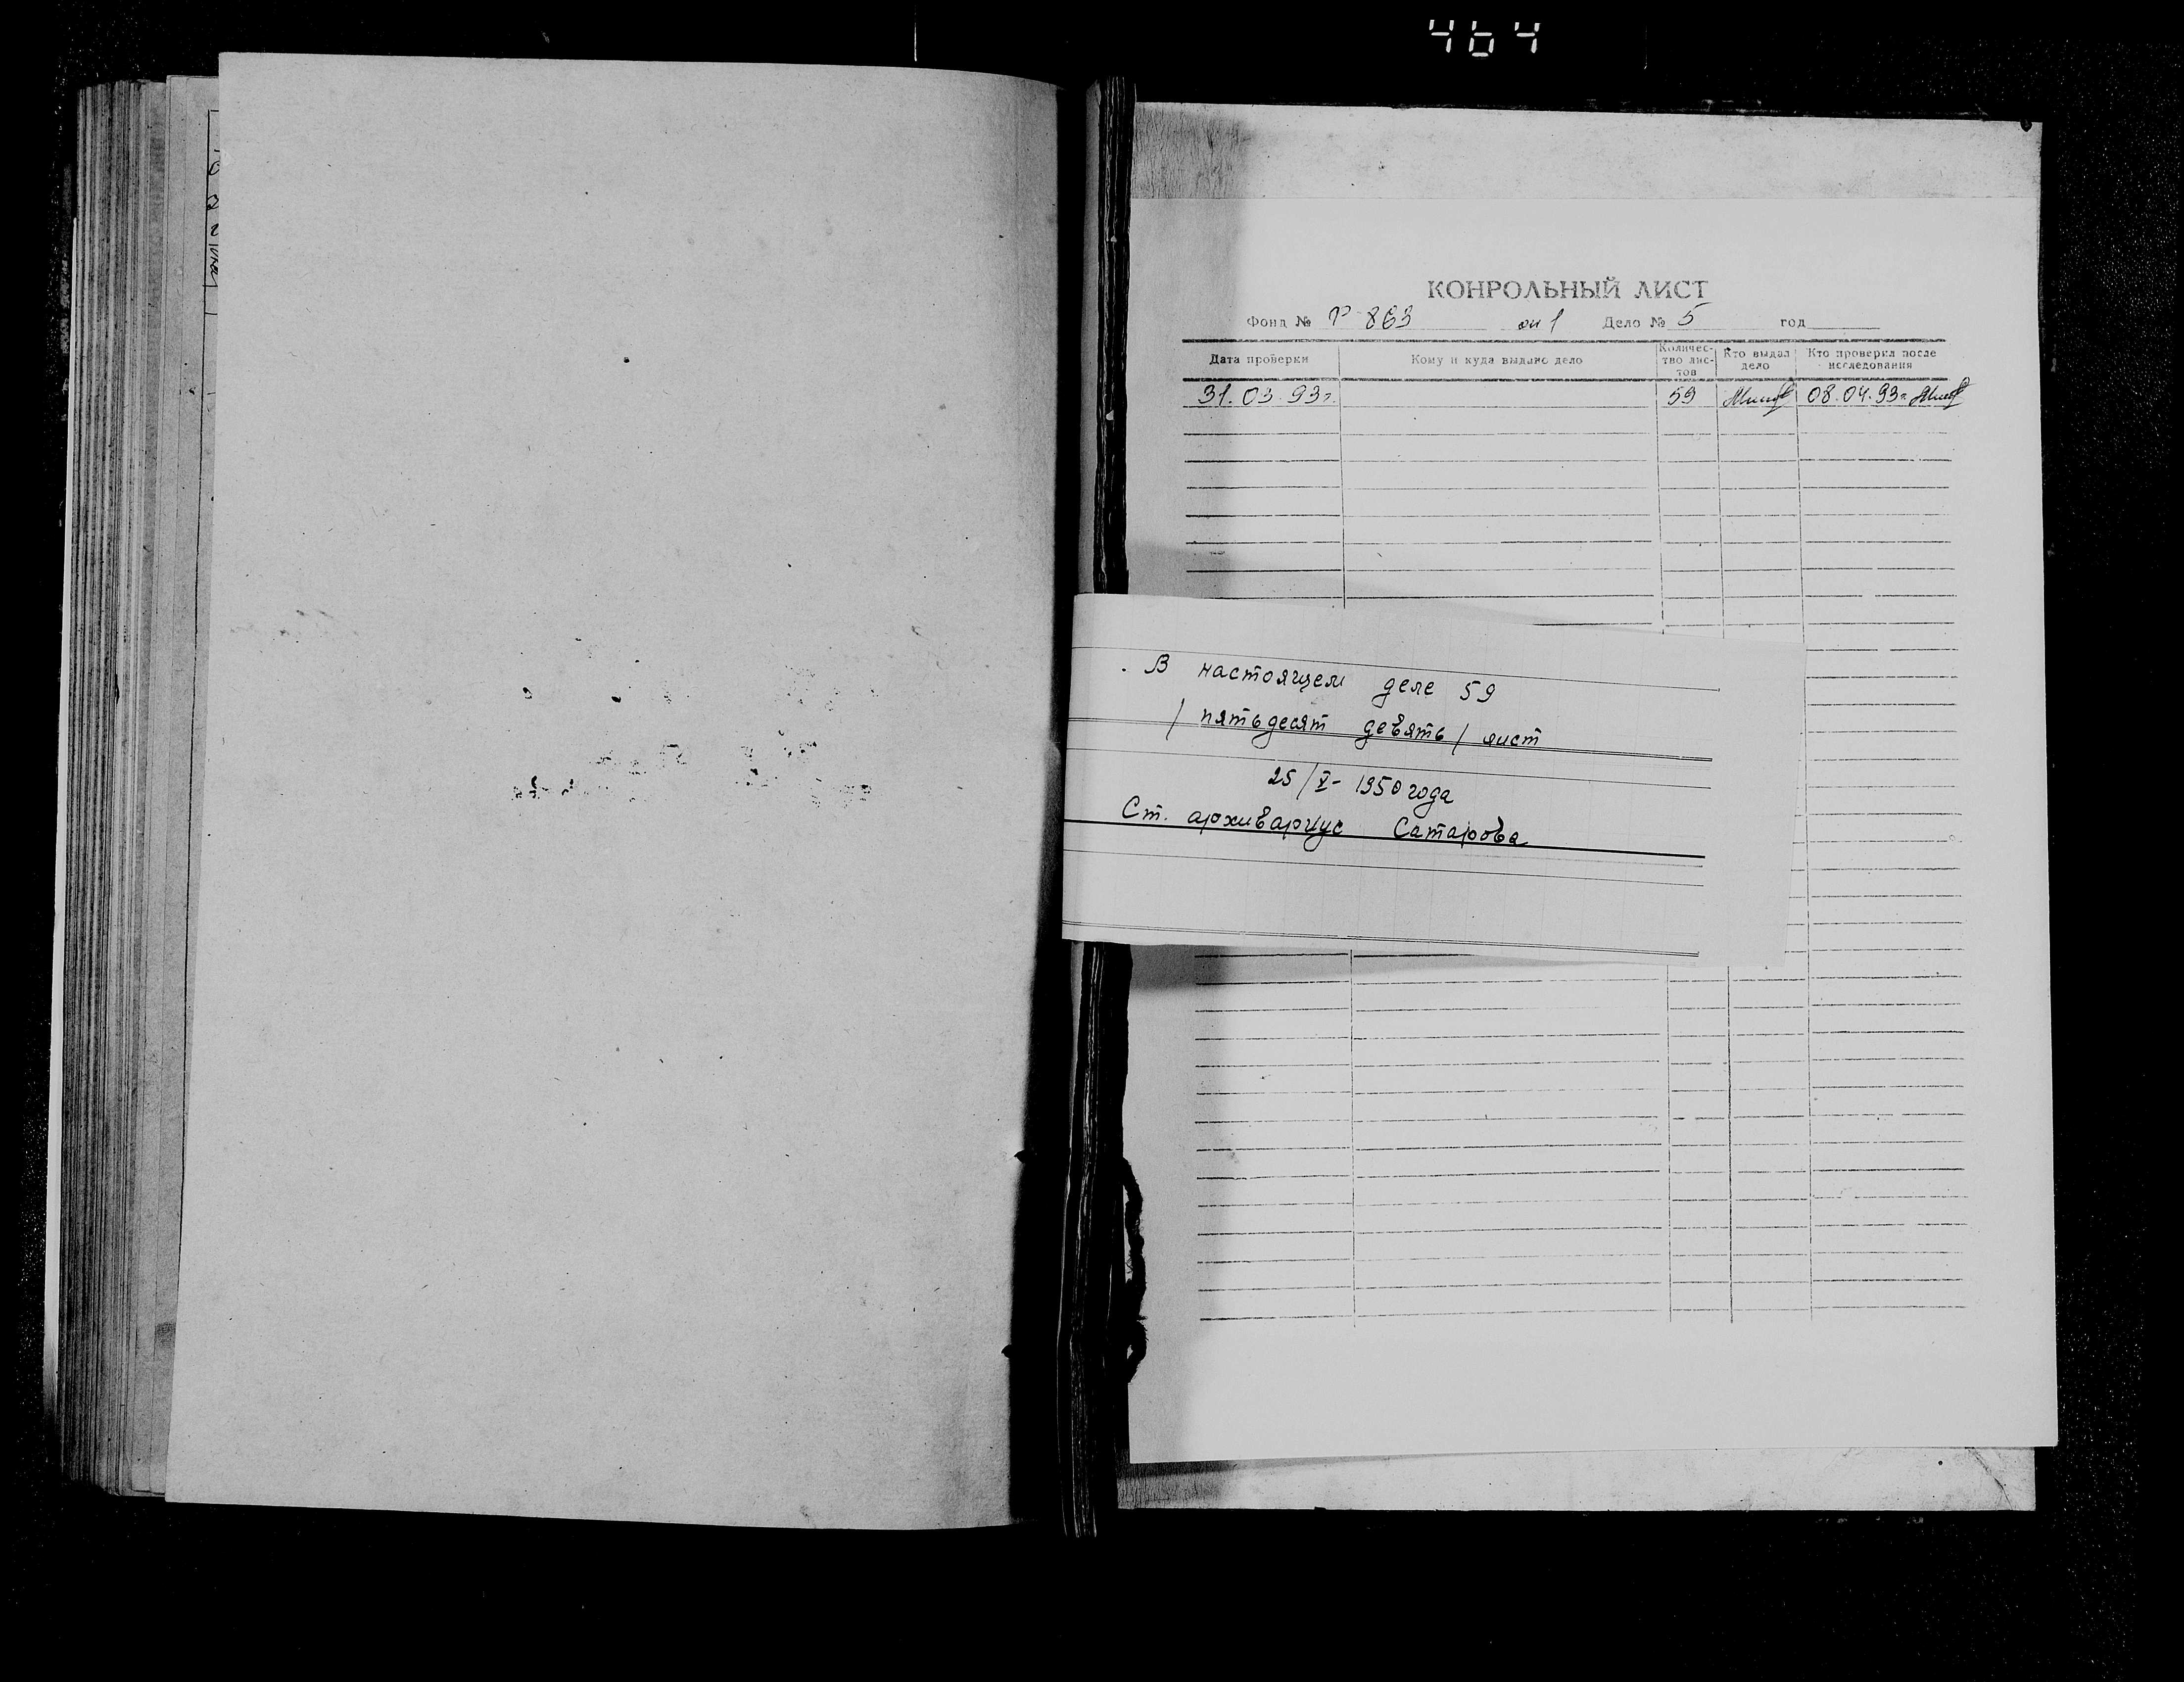 464
КОНРОЛЬНЫЙ ЛИСТ
Фонд № Р-863 оп 1 Дело № 5 год
Дата проверки Кому и куда выдано дело Количес-тво лис-тов Кто выдал дело Кто проверил после исследования
31.03.93г. 59 08.04.93г.
В настоящем деле 59
/ пятьдесят девять / лист
25/V- 1950 года
Ст. архивариус Сатарова